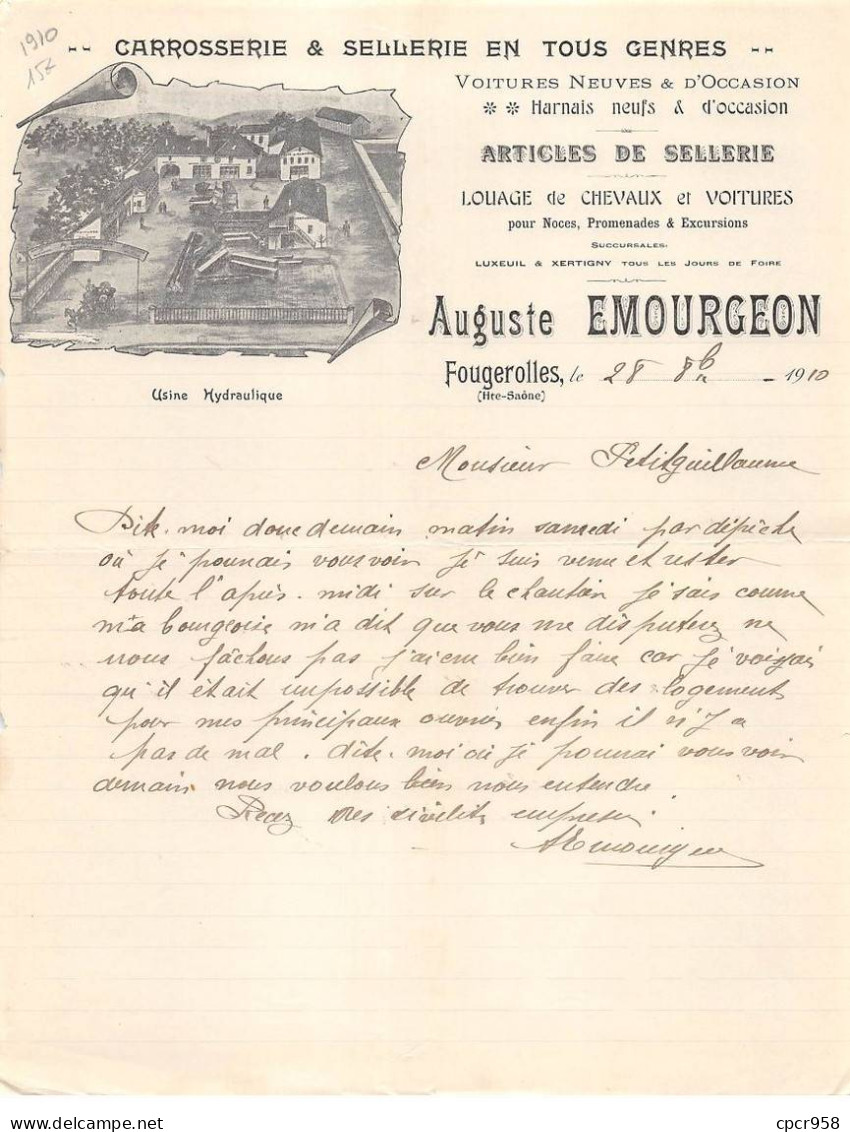 1910
15€
CARROSSERIE & SELLERIE EN TOUS GENRES
VOITURES NEUVES & D'OCCASION
Harnais neufs & d'occasion
ARTICLES DE SELLERIE
LOUAGE de CHEVAUX et VOITURES
pour Noces, Promenades & Excursions
SUCCURSALES:
LUXEUIL & XERTIGNY TOUS LES JOURS DE FOIRE
Auguste EMOURGEON
Fougerolles, le 28 8b 1910
(Hte-Saône)
Usine Hydraulique
Monsieur Petitguillaume
Dite-moi donc demain matin samedi par dépèche
où jè pourrais vous voir jè suis venu et rester
toute l'après-midi sur le chantier jè sais comme
m'a bourgeoise m'a dit que vous me disputerez ne
nous fâchons pas j'ai cru bien faire car jè voyais
qu'il était impossible de trouver des logements
pour mes principaux ouvriers enfin il n'y a
pas de mal. dîte-moi où jè pourrai vous voir
demain nous voulons bien nous entendre.
Recez mes civilités empressé.
AEmourgeon
cpcr958